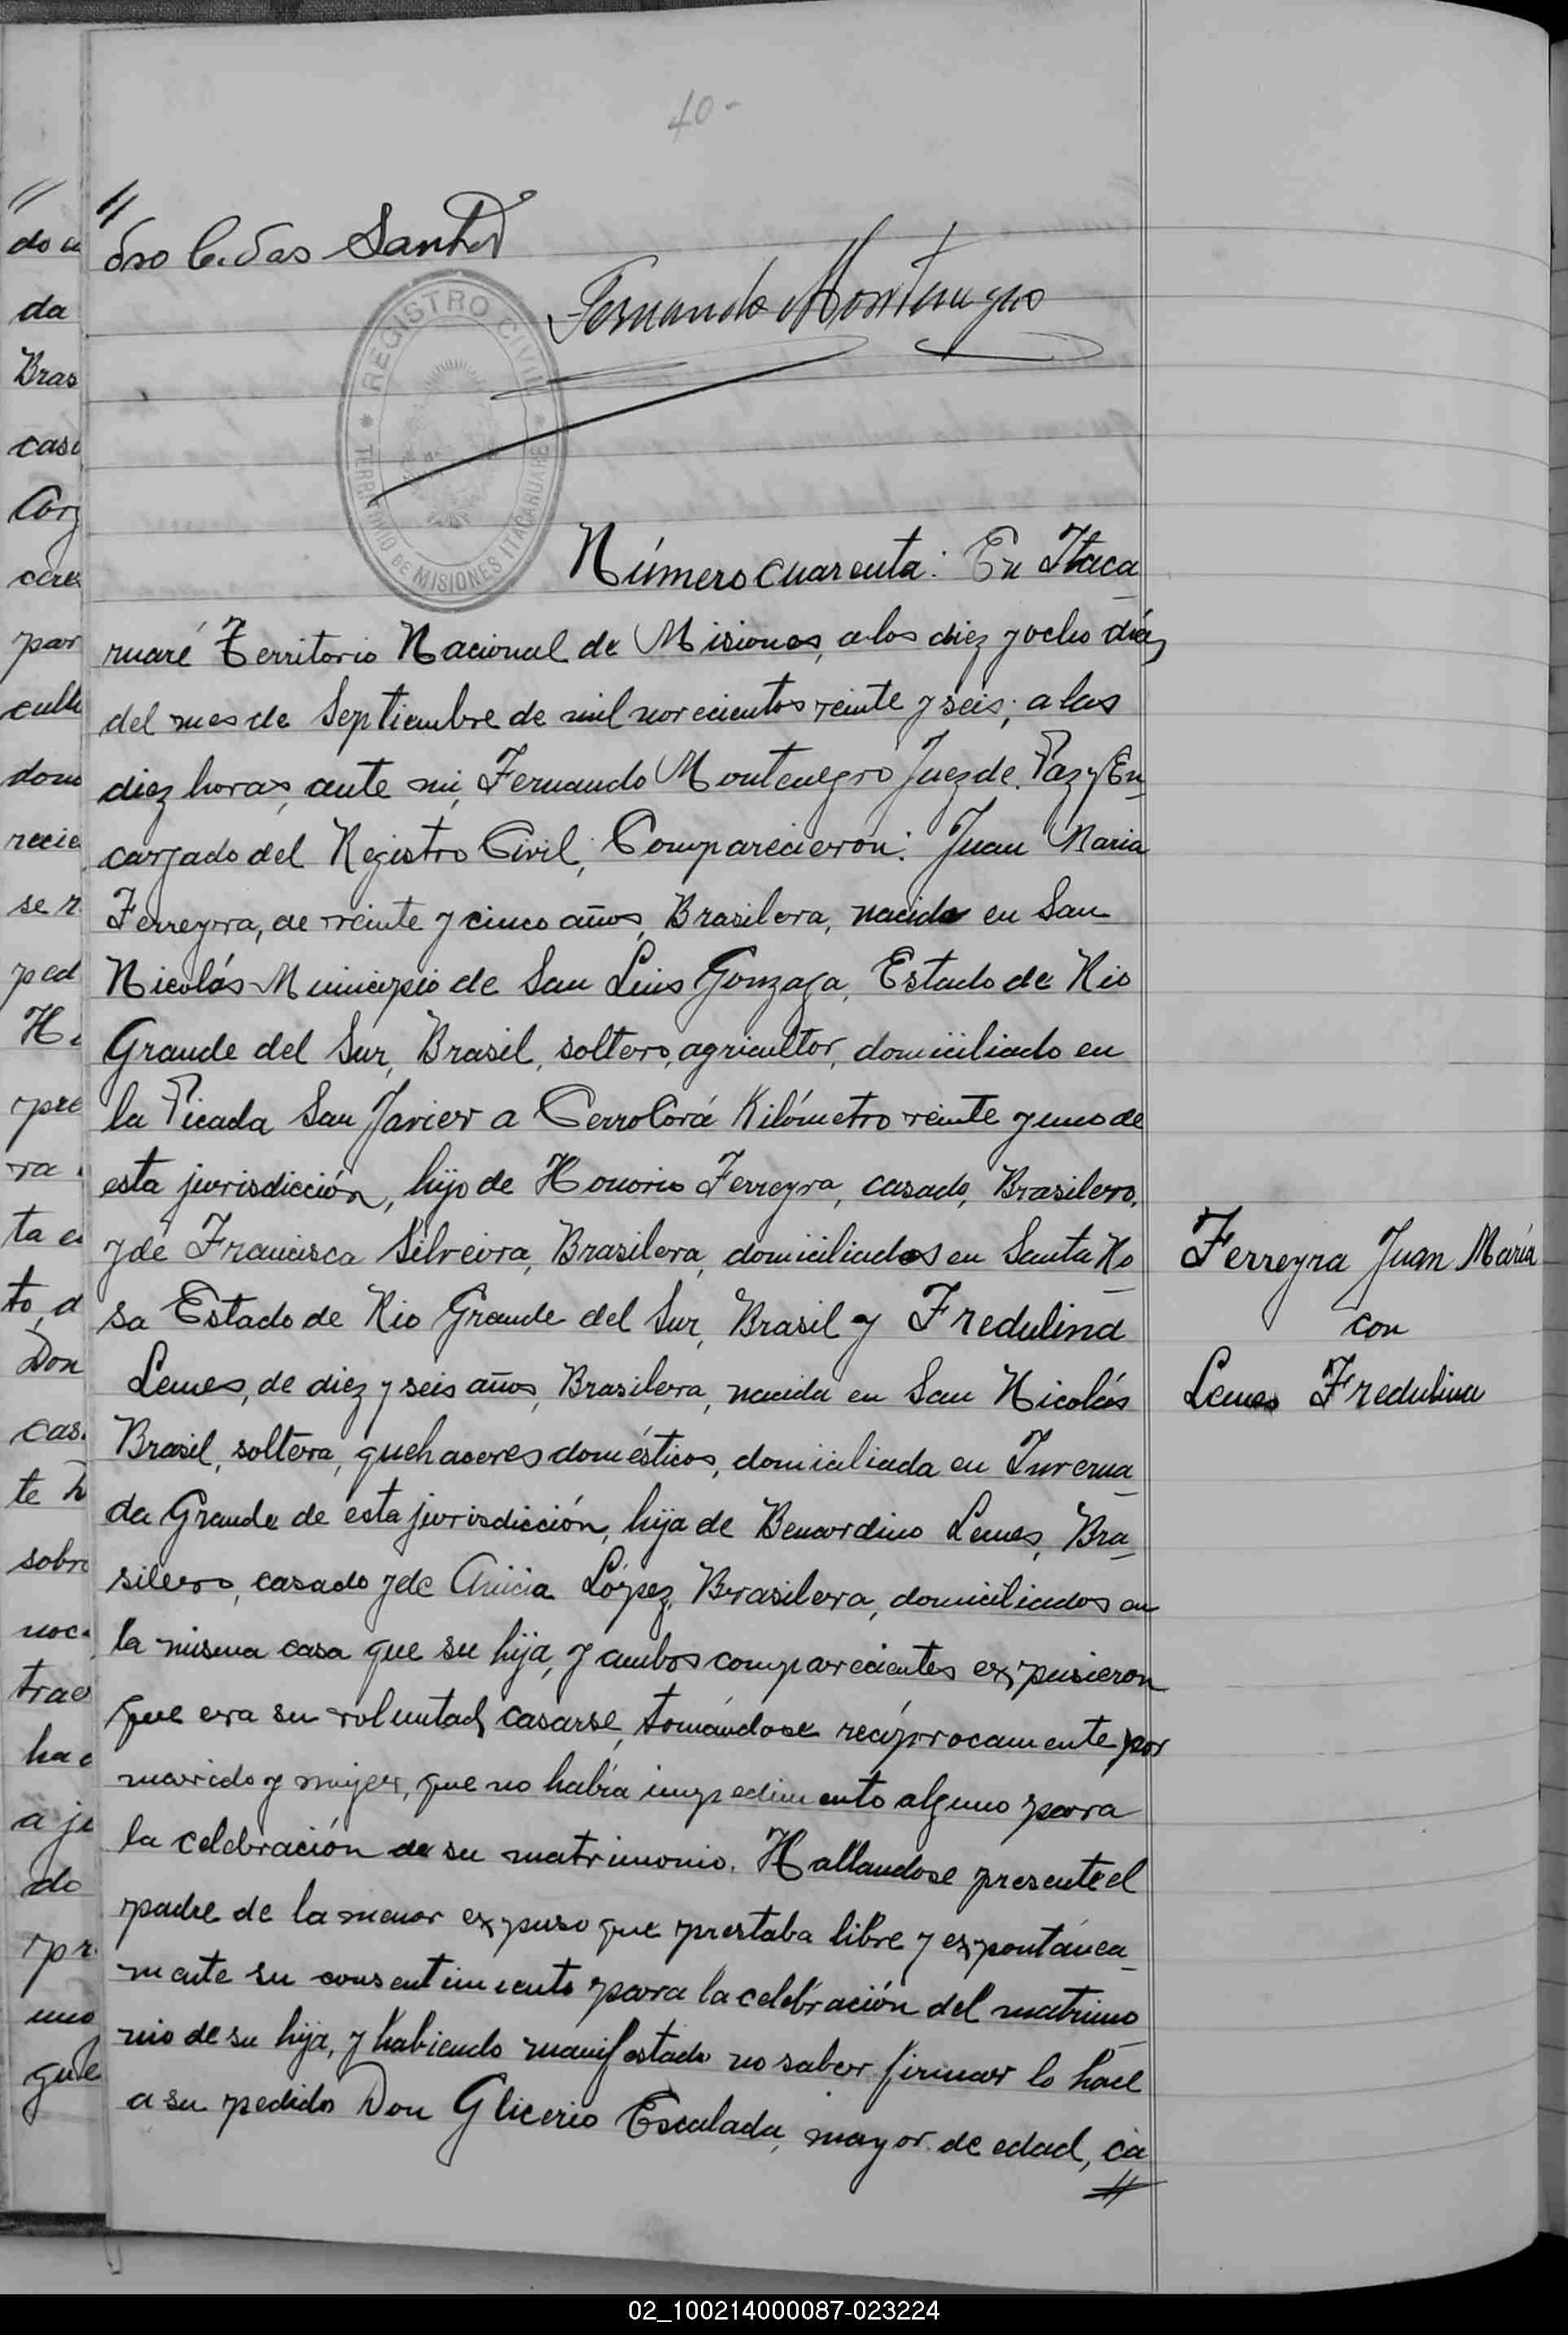 40-
//
dro C. das Santos
Fernando Montenegro
REGISTRO CIVIL
TERRITORIO DE MISIONES ITACARUARE
Número cuarenta: En Itaca
ruaré Territorio Nacional de Misiones, a los diez y ocho días
del mes de Septiembre de mil novecientos veinte y seis; a las
diez horas, ante mi, Fernando Montenegro Juez de Paz y En
cargado del Registro Civil; Comparecieron: Juan Maria
Ferreyra, de veinte y cinco años, Brasilera, nacido en San
Nicolás Municipio de San Luis Gonzaga, Estado de Rio
Grande del Sur, Brasil, soltero, agricultor, domiciliado en
la Picada San Javier a Cerro Corá Kilómetro veinte y uno de
esta jurisdicción, hijo de Honorio Ferreyra, casado, Brasilero,
y de Francisca Silveira, Brasilera, domiciliados en Santa Ro
sa Estado de Rio Grande del Sur, Brasil y Fredulina
Lemes, de diez y seis años, Brasilera, nacida en San Nicolás
Brasil, soltera, quehaceres domésticos, domiciliada en Inverna
da Grande de esta jurisdicción, hija de Benardino Lemes, Bra
silero, casado y de Anicia López, Brasilera, domiciliados en
la misma casa que su hija, y ambos comparecientes expusieron
que era su voluntad casarse, tomándose recíprocamente por
marido y mujer, que no había impedimento alguno para
la celebración de su matrimonio. Hallandose presente el
padre de la menor expuso que prestaba libre y expontánea
mente su consentimiento para la celébración del matrimo
nio de su hija, y habiendo manifestado no saber firmar lo hace
a su pedido Don Glicerio Escalada, mayor de edad, ca
//
Ferreyra Juan María
con
Lemes Fredulina
//
do
da
Bras
cas
Corg
ceres
par
culto
dom
recie
se r
ped
H
pre
ra
ta
to, d
Don
cas
te
sobre
noc
trae
hac
a ju
do
pr
uno
que
02_100214000087-023224